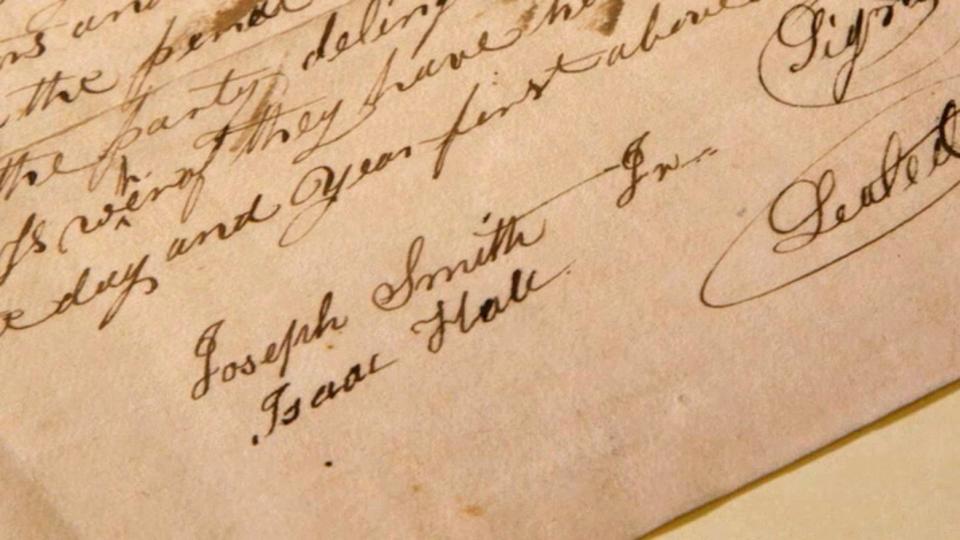 ns and
the penal
the party delinq
ss whereof they have he
e day and Year first above
Sign
Sealed
Joseph Smith Jr.
Isaac Hale